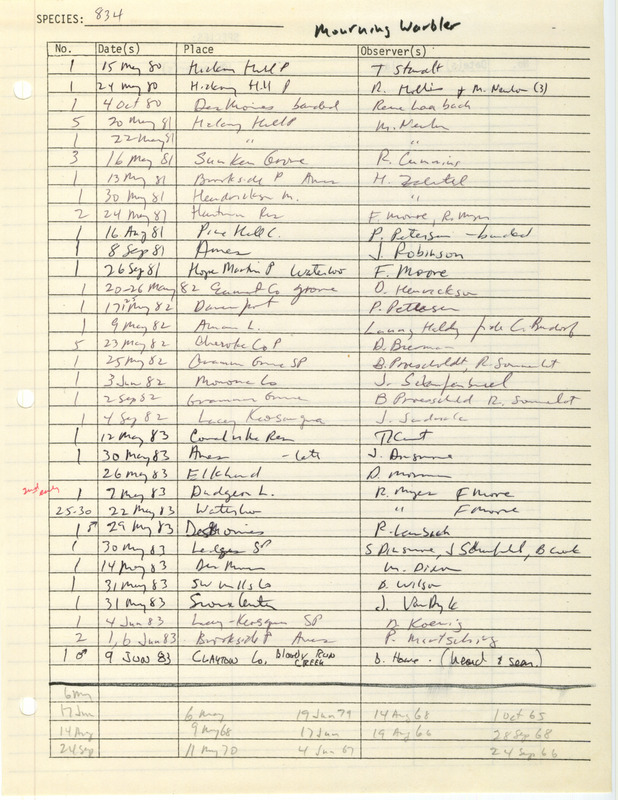 SPECIES: 834
Mourning Warbler
No. Date(s) Place Observer(s)
1 15 May 80 Hickory Hill P T
1 24 May 80 Hickory Hill P R. Hollis & M. Newlon (3)
1 4 Oct 80 Des Moines banded Rene Laubach
5 20 May 81 Hickory Hill P M. Newlon
1 22 May 81 "
3 16 May 81 Sunken Grove R. Cummins
1 13 May 81 Brookside P Ames H. Zaletel
1 30 May 81 Hendrickson M. "
2 24 May 81 F. Moore, R. Myers
1 16 Aug 81 Pine Hill C. P. Petersen - banded
1 8 Sep 81 Ames J. Robinson
1 26 Sep 81 Hope Martin P Waterloo F. Moore
1 20-26 May 82 Co Grove O.
1 17, 25 May 82 Davenport P. Petersen
1 9 May 82 L.
5 23 May 82 Cherokee Co P D. Bierman
1 25 May 82 Grove SP B. Proescholdt, R.
1 3 Jun 82 Monona Co J.
1 2 Sep 82 Grove B Proescholdt R.
1 4 Sep 82 Lacey Keosauqua J.
1 12 May 83 Coralville Res T Kent
1 30 May 83 Ames - late J. Dinsmore
26 May 83 Elkhead D.
2nd early 1 7 May 83 Dudgeon L. R. Myers F Moore
25-30 22 May 83 Waterloo " F Moore
1 ♂ 29 May 83 Des Moines R. Laubach
1 30 May 83 Ledges SP S Dinsmore, J B
1 14 May 83 Des Moines M.
1 31 May 83 SW Mills Co B. Wilson
1 31 May 83 Sioux Center J. Van Dyk
1 4 Jun 83 Lacey-Keosauqua SP D Koenig
2 1, 6 Jun 83 Brookside P Ames P. Martsching
1 ♂ 9 JUN 83 CLAYTON CO, BLOODY RUN CREEK D. Howe - (heard & seen)
6 May
17 Jun 6 May 19 Jun 79 14 Aug 68 1 Oct 65
14 Aug 9 May 68 17 Jun 19 Aug 66 28 Sep 68
24 Sep 11 May 70 4 Jun 67 24 Sep 66